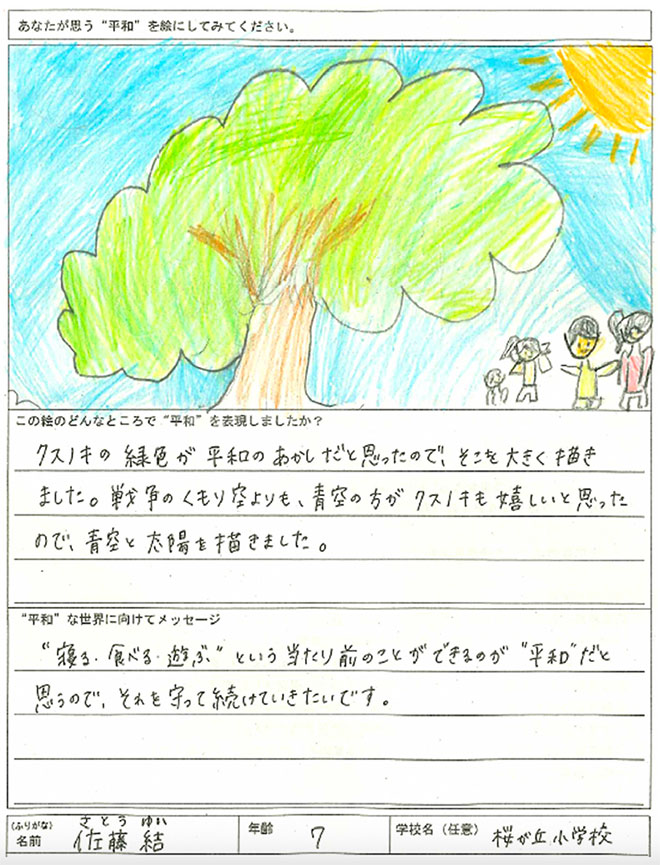 あなたが思う“平和”を絵にしてみてください。
この絵のどんなところで“平和”を表現しましたか？
クスノキの緑色が平和のあかしだと思ったので、そこを大きく描き
ました。戦争のくもり空よりも、青空の方がクスノキも嬉しいと思った
ので、青空と太陽を描きました。
“平和”な世界に向けてメッセージ
“寝る・食べる・遊ぶ”という当たり前のことができるのが“平和”だと
思うので、それを守って続けていきたいです。
(ふりがな) さとう ゆい
名前 佐藤 結 年齢 7 学校名（任意） 桜が丘小学校